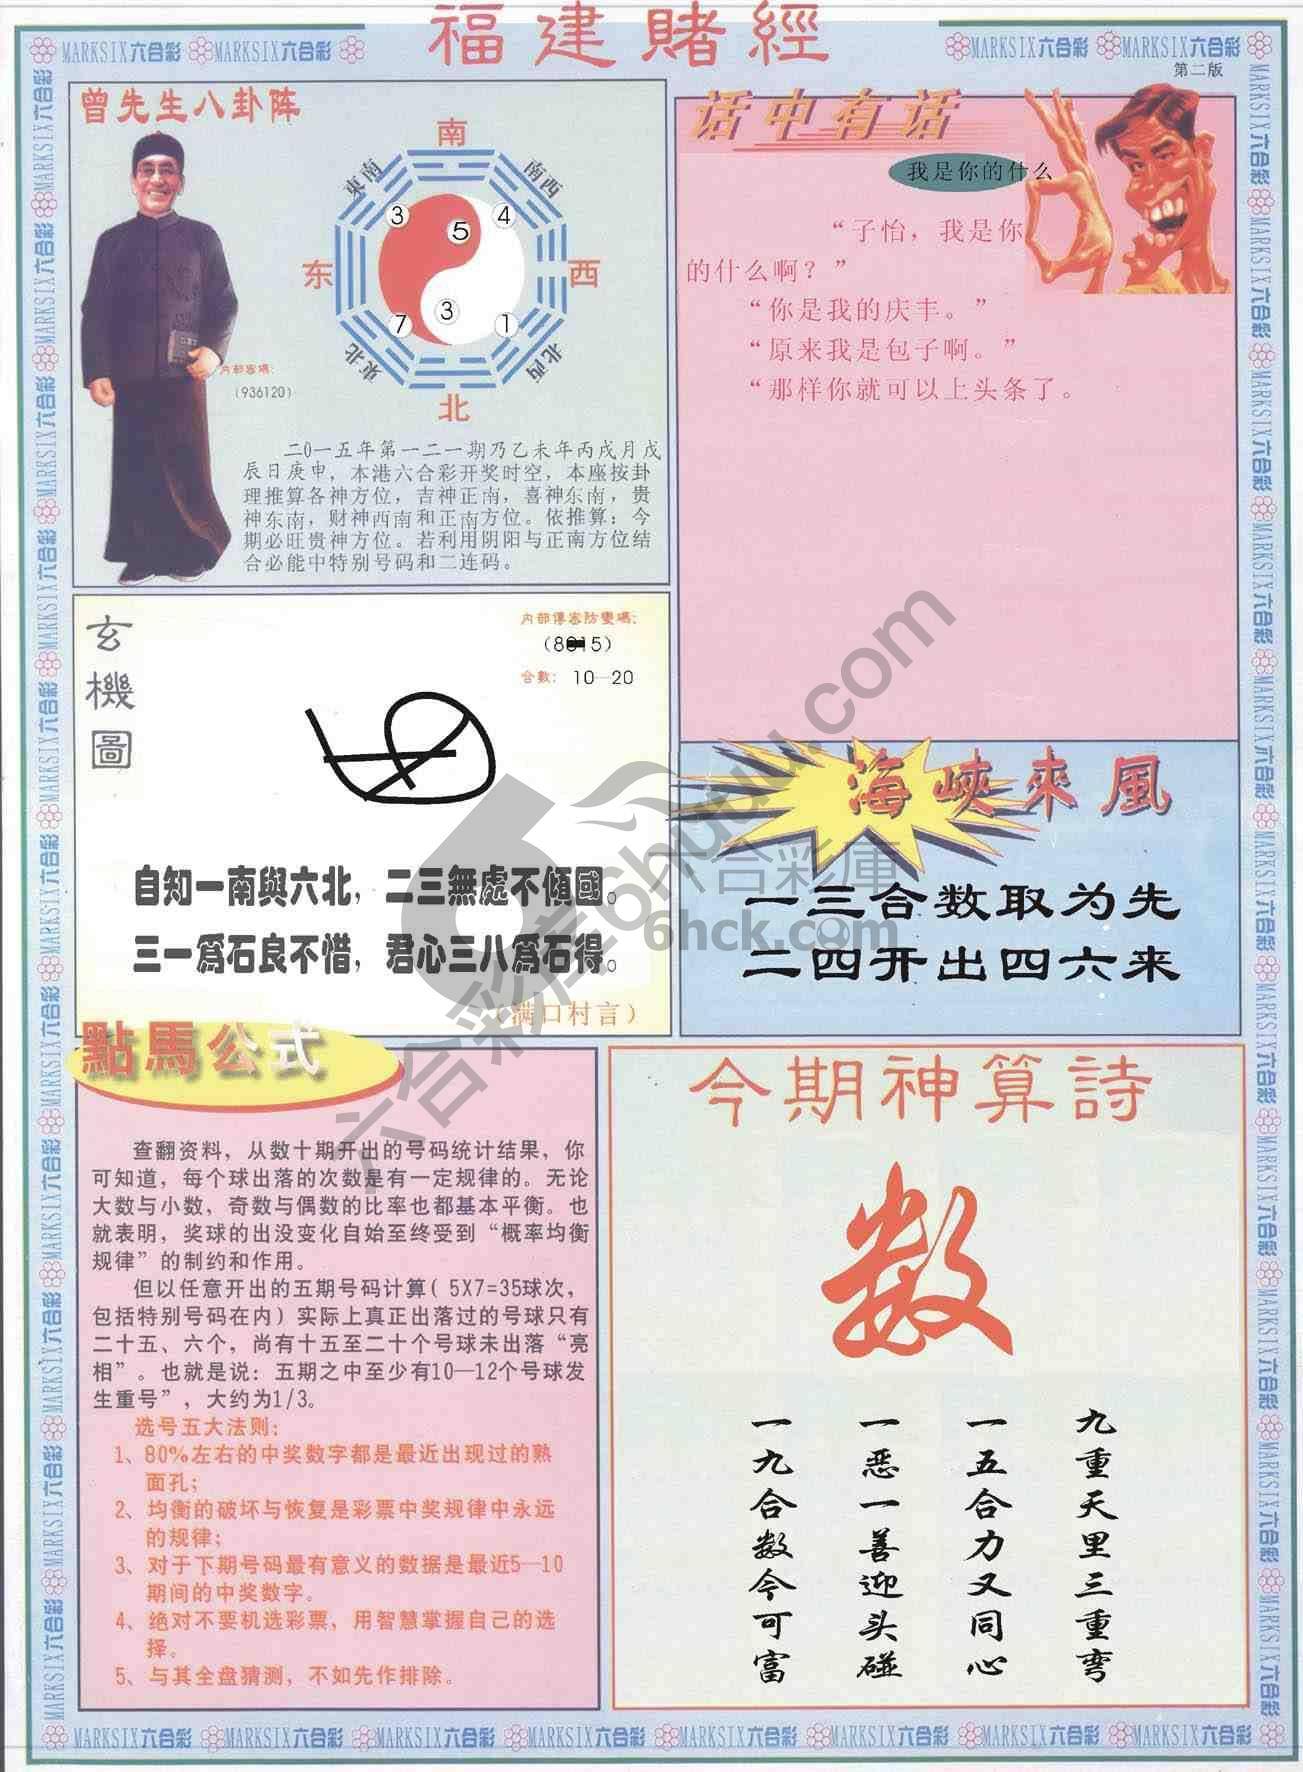 福建賭經
MARKSIX六合彩 MARKSIX六合彩
MARKSIX六合彩 MARKSIX六合彩
第二版
曾先生八卦阵
南
東南
南西
3
5
4
东
西
7
3
1
東北
北西
北
内部密碼:
(936120)
二0一五年第一二一期乃乙未年丙戌月戊
辰日庚申,本港六合彩开奖时空,本座按卦
理推算各神方位,吉神正南,喜神东南,贵
神东南,财神西南和正南方位。依推算:今
期必旺贵神方位。若利用阴阳与正南方位结
合必能中特别号码和二连码。
话中有话
我是你的什么
“子怡,我是你
的什么啊?”
“你是我的庆丰。”
“原来我是包子啊。”
“那样你就可以上头条了。
玄機圖
内部傳密防變碼:
合數: 10—20
自知一南與六北,二三無處不傾國。
三一爲石良不惜,君心三八爲石得。
(满口村言)
海峽來風
一三合数取为先
二四开出四六来
六合彩库6hcku.com
六合彩庫
6hck.com
點馬公式
查翻资料,从数十期开出的号码统计结果,你
可知道,每个球出落的次数是有一定规律的。无论
大数与小数,奇数与偶数的比率也都基本平衡。也
就表明,奖球的出没变化自始至终受到“概率均衡
规律”的制约和作用。
但以任意开出的五期号码计算( 5X7=35球次,
包括特别号码在内)实际上真正出落过的号球只有
二十五、六个,尚有十五至二十个号球未出落“亮
相”。也就是说:五期之中至少有10—12个号球发
生重号”,大约为1/3。
选号五大法则:
1、80%左右的中奖数字都是最近出现过的熟
面孔;
2、均衡的破坏与恢复是彩票中奖规律中永远
的规律;
3、对于下期号码最有意义的数据是最近5—10
期间的中奖数字。
4、绝对不要机选彩票,用智慧掌握自己的选
择。
5、与其全盘猜测,不如先作排除。
今期神算詩
数
九重天里三重弯
一五合力又同心
一恶一善迎头碰
一九合数今可富
MARKSIX六合彩 MARKSIX六合彩 MARKSIX六合彩 MARKSIX六合彩 MARKSIX六合彩 MARKSIX六合彩 MARKSIX六合彩 MARKSIX六合彩